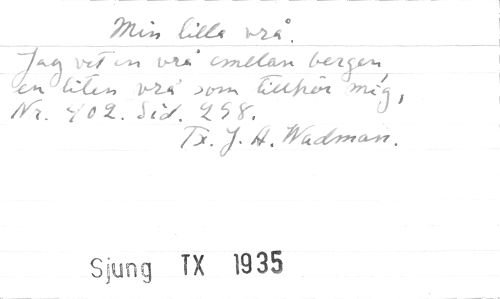 Min lilla vrå.
Jag vet en vrå emellan bergen
en liten vrå som tillhör mig,
Nr. 402. Sid. 298.
Tx. J. A. Wadman.
Sjung TX 1935